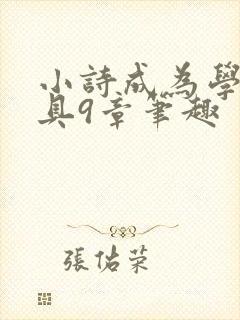 小詩成為學
具9章筆趣
張佑荣